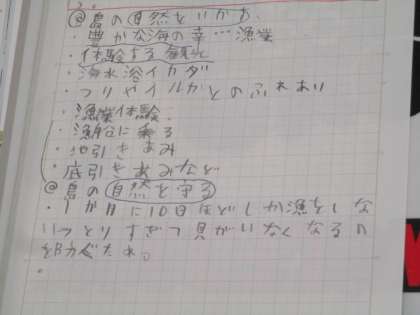 @島の自然をいかす
・豊かな海の幸…漁業
・体験する観光
・海水浴イカダ
・つりやイルカとのふれあい
・漁業体験
・漁船に乗る
・地引きあみ
・底引きあみなど
@島の自然を守る
・1か月に10日ほどしか漁をしな
いっとりすぎて貝がいなくなるの
を防ぐため。
・